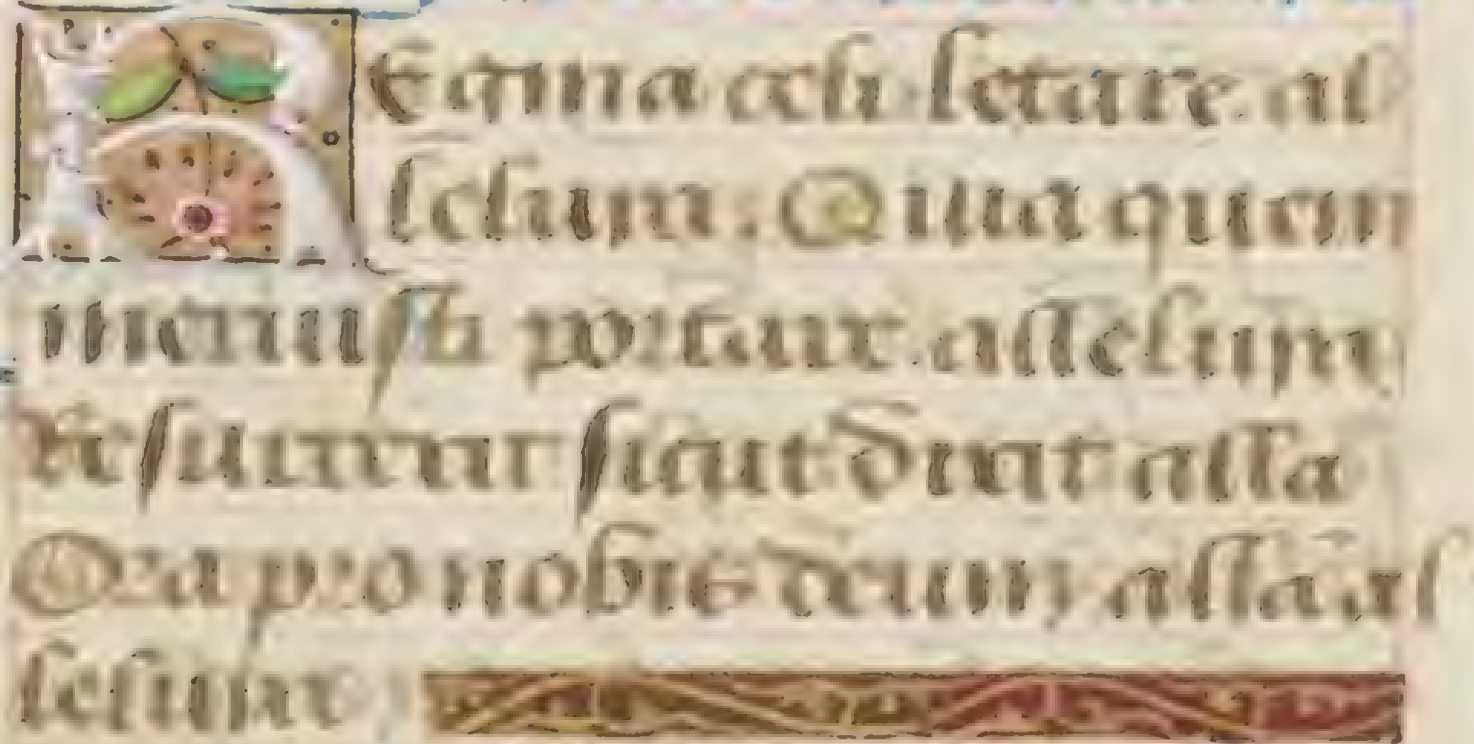 Regina celi letare al
leluia. Quia quem
meruisti portare. alleluia
Resurrexit sicut dixit alla
Ora pro nobis deum, alla al
leluia